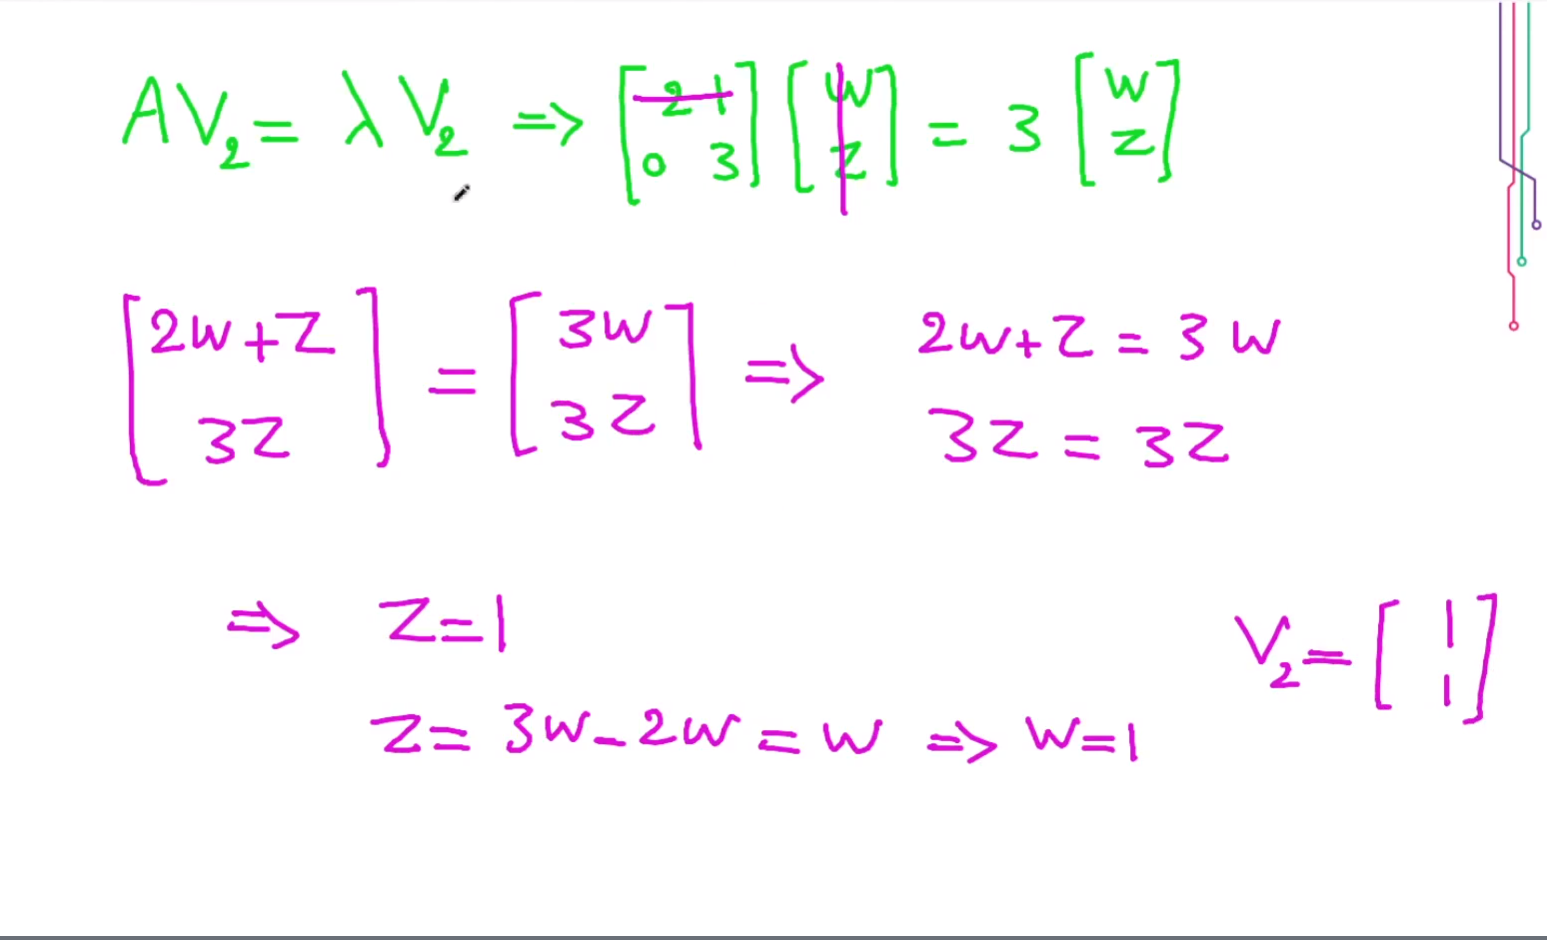 AV₂ = λV₂ ⇒ [2 1; 0 3] [w; z] = 3 [w; z]
[2w+z; 3z] = [3w; 3z] ⇒ 2w+z = 3w
3z = 3z
⇒ z=1
z = 3w-2w = w ⇒ w=1
V₂ = [1; 1]